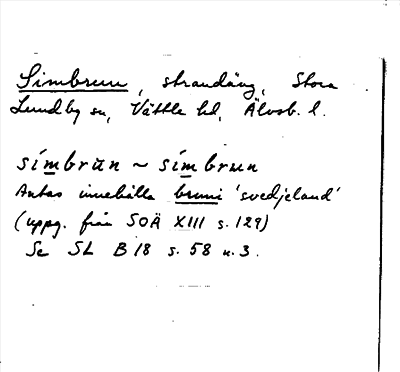 Simbrun, strandäng, Stora
Lundby sn, Vättle hd, Älvsb. l.
símbrùn ~ sím brun
Antas innehålla bruni 'svedjeland'
(uppg. från SOÄ XIII s. 129)
Se SL B 18 s. 58 n. 3.